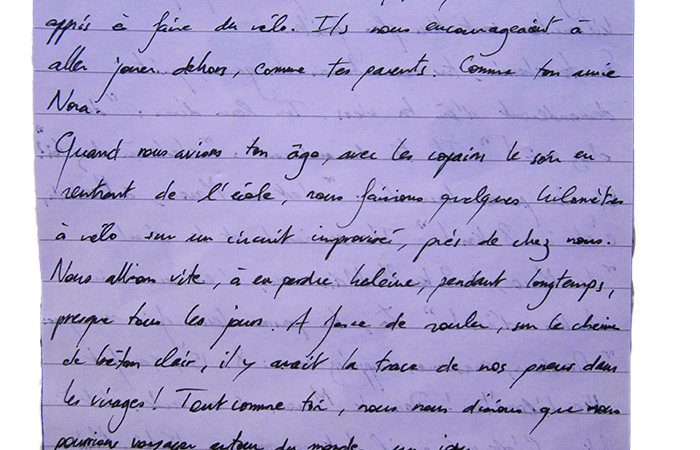 appris à faire du vélo. Ils nous encourageaient à
aller jouer dehors, comme tes parents. Comme ton amie
Nora.
Quand nous avions ton âge, avec les copains le soir en
rentrant de l'école, nous faisions quelques kilomètres
à vélo sur un circuit improvisé, près de chez nous.
Nous allions vite, à en perdre haleine, pendant longtemps,
presque tous les jours. A force de rouler, sur le chemin
de béton clair, il y avait la trace de nos pneus dans
les virages ! Tout comme toi, nous nous disions que nous
pourrions voyager autour du monde un jour